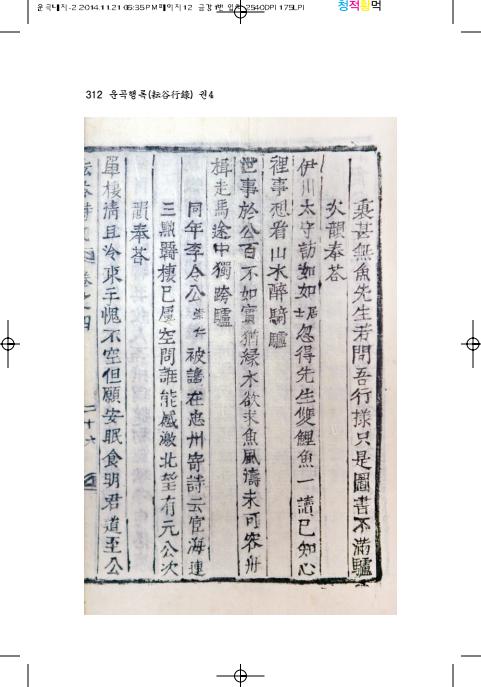 운곡대지-2 2014.11.21 05:35 PM 페이지12
2540DPI 175LPI
청적황먹
312 운곡행록(耘谷行錄) 권4
裹甚無魚先生若問吾行㨾只是圖書不滿驢
次韻奉荅
伊川太守訪如如居士忽得先生雙鯉魚一讀已知心
裡事想看山水醉騎驢
世事於公百不如實猶緣木欲求魚風濤未可容舟
楫走馬途中獨跨驢
同年李令公崇仁被謫在忠州寄詩云宦海連
三點爵棲已屢空問誰能感激北望有元公次
韻奉荅
單棲淸且冷來于愧不空但願安眠食明君道至公
卷之四
二十六